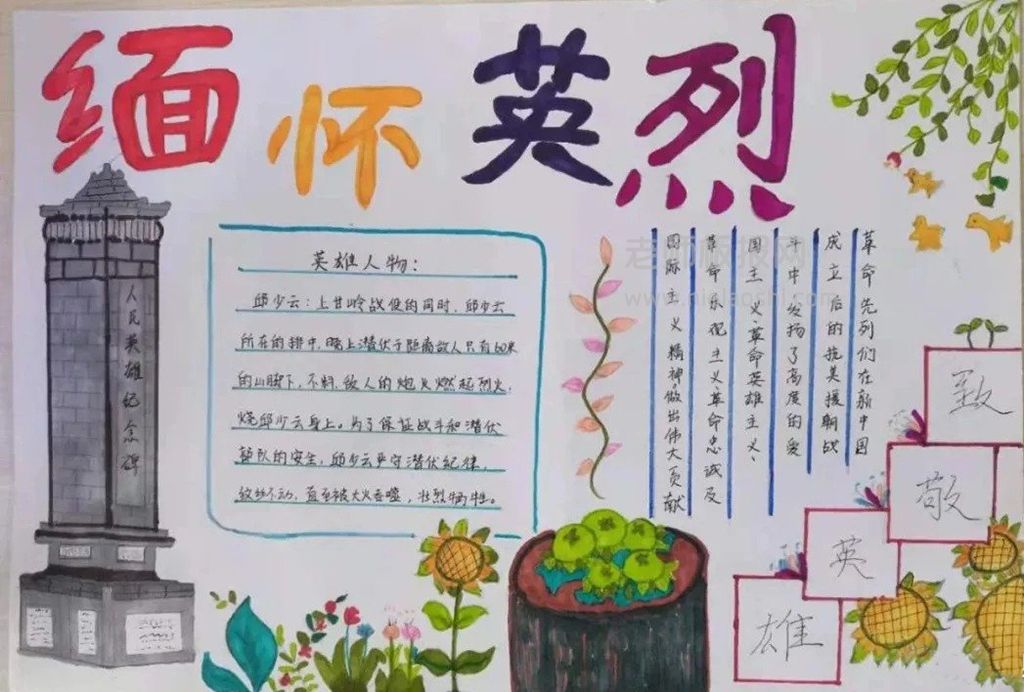 缅怀英烈
人民英雄纪念碑
英雄人物：
邱少云：上甘岭战役的同时，邱少云
所在的排中，晚上潜伏于距离敌人只有60米
的山脚下，不料，敌人的炮火燃起烈火，
烧邱少云身上。为了保证战斗和潜伏
部队的安全，邱少云严守潜伏纪律，
纹丝不动，直至被大火吞噬，壮烈牺牲。
革命先列们在新中国
成立后的抗美援朝战
斗中发扬了高度的爱
国主义革命英雄主义、
革命乐观主义革命忠诚及
国际主义精神"做出伟大贡献
致
敬
英
雄